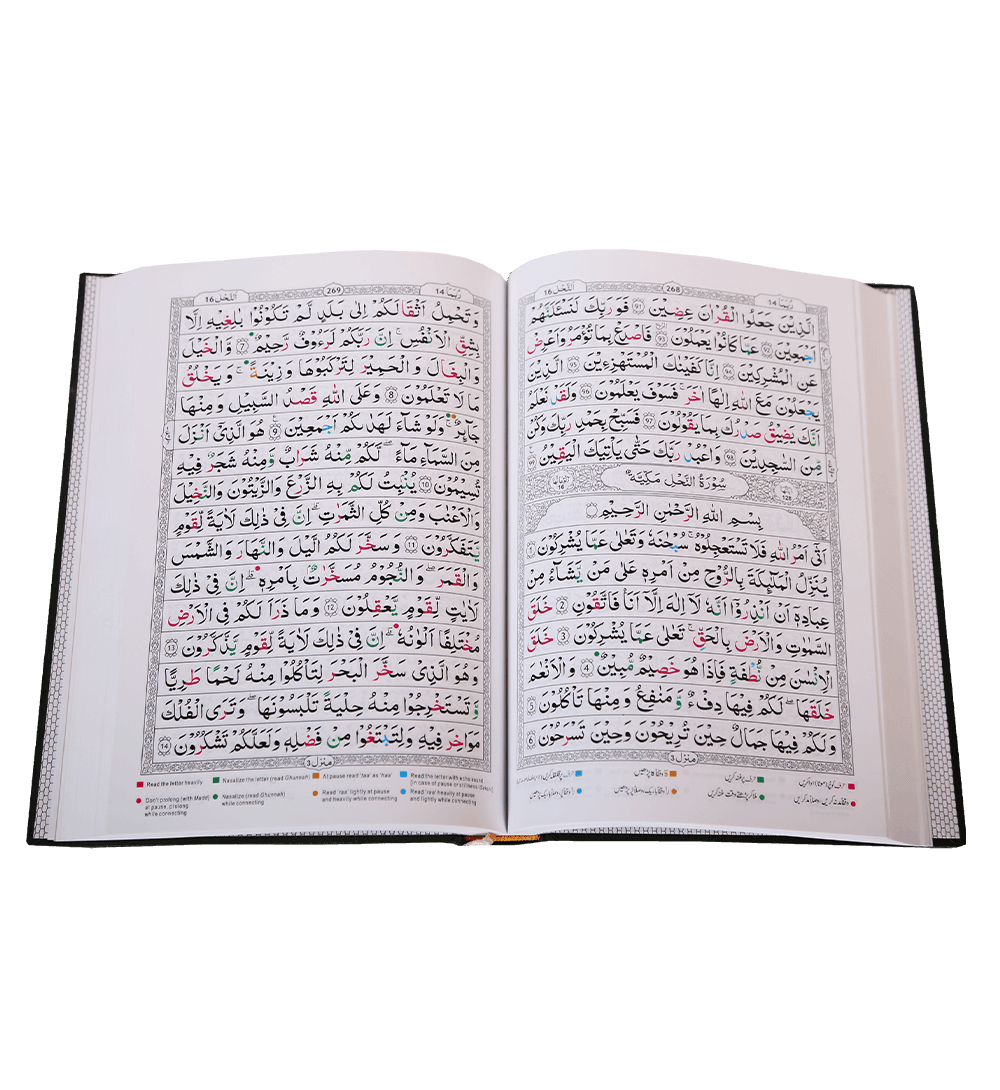 النحل 16
268
ربما 14
الَّذِيْنَ جَعَلُوا الْقُرْاٰنَ عِضِيْنَ ﴿91﴾ فَوَرَبِّكَ لَنَسْـَٔلَنَّهُمْ
اَجْمَعِيْنَ ﴿92﴾ عَمَّا كَانُوْا يَعْمَلُوْنَ ﴿93﴾ فَاصْدَعْ بِمَا تُؤْمَرُ وَاَعْرِضْ
عَنِ الْمُشْرِكِيْنَ ﴿94﴾ اِنَّا كَفَيْنٰكَ الْمُسْتَهْزِءِيْنَ ﴿95﴾ الَّذِيْنَ
يَجْعَلُوْنَ مَعَ اللّٰهِ اِلٰهًا اٰخَرَ ۚ فَسَوْفَ يَعْلَمُوْنَ ﴿96﴾ وَلَقَدْ نَعْلَمُ
اَنَّكَ يَضِيْقُ صَدْرُكَ بِمَا يَقُوْلُوْنَ ﴿97﴾ فَسَبِّحْ بِحَمْدِ رَبِّكَ وَكُنْ
مِّنَ السّٰجِدِيْنَ ﴿98﴾ وَاعْبُدْ رَبَّكَ حَتّٰى يَاْتِيَكَ الْيَقِيْنُ ﴿99﴾
سُوْرَةُ النَّحْلِ مَكِّيَّةٌ
128
بِسْمِ اللّٰهِ الرَّحْمٰنِ الرَّحِيْمِ
اَتٰۤى اَمْرُ اللّٰهِ فَلَا تَسْتَعْجِلُوْهُ ؕ سُبْحٰنَهٗ وَتَعٰلٰى عَمَّا يُشْرِكُوْنَ ﴿1﴾
يُنَزِّلُ الْمَلٰٓئِكَةَ بِالرُّوْحِ مِنْ اَمْرِهٖ عَلٰى مَنْ يَّشَآءُ مِنْ
عِبَادِهٖۤ اَنْ اَنْذِرُوْۤا اَنَّهٗ لَاۤ اِلٰهَ اِلَّاۤ اَنَا فَاتَّقُوْنِ ﴿2﴾ خَلَقَ
السَّمٰوٰتِ وَالْاَرْضَ بِالْحَقِّ ؕ تَعٰلٰى عَمَّا يُشْرِكُوْنَ ﴿3﴾ خَلَقَ
الْاِنْسَانَ مِنْ نُّطْفَةٍ فَاِذَا هُوَ خَصِيْمٌ مُّبِيْنٌ ﴿4﴾ وَالْاَنْعَامَ
خَلَقَهَا ۚ لَكُمْ فِيْهَا دِفْءٌ وَّمَنَافِعُ وَمِنْهَا تَاْكُلُوْنَ ﴿5﴾
وَلَكُمْ فِيْهَا جَمَالٌ حِيْنَ تُرِيْحُوْنَ وَحِيْنَ تَسْرَحُوْنَ ﴿6﴾
منزل 3
النحل 16
269
ربما 14
وَتَحْمِلُ اَثْقَالَكُمْ اِلٰى بَلَدٍ لَّمْ تَكُوْنُوْا بٰلِغِيْهِ اِلَّا
بِشِقِّ الْاَنْفُسِ ؕ اِنَّ رَبَّكُمْ لَرَءُوْفٌ رَّحِيْمٌ ﴿7﴾ وَّالْخَيْلَ
وَالْبِغَالَ وَالْحَمِيْرَ لِتَرْكَبُوْهَا وَزِيْنَةً ؕ وَيَخْلُقُ
مَا لَا تَعْلَمُوْنَ ﴿8﴾ وَعَلَى اللّٰهِ قَصْدُ السَّبِيْلِ وَمِنْهَا
جَآئِرٌ ؕ وَلَوْ شَآءَ لَهَدٰىكُمْ اَجْمَعِيْنَ ﴿9﴾ هُوَ الَّذِيْۤ اَنْزَلَ
مِنَ السَّمَآءِ مَآءً لَّكُمْ مِّنْهُ شَرَابٌ وَّمِنْهُ شَجَرٌ فِيْهِ
تُسِيْمُوْنَ ﴿10﴾ يُنْۢبِتُ لَكُمْ بِهِ الزَّرْعَ وَالزَّيْتُوْنَ وَالنَّخِيْلَ
وَالْاَعْنَابَ وَمِنْ كُلِّ الثَّمَرٰتِ ؕ اِنَّ فِيْ ذٰلِكَ لَاٰيَةً لِّقَوْمٍ
يَّتَفَكَّرُوْنَ ﴿11﴾ وَسَخَّرَ لَكُمُ الَّيْلَ وَالنَّهَارَ وَالشَّمْسَ
وَالْقَمَرَ ؕ وَالنُّجُوْمُ مُسَخَّرٰتٌۢ بِاَمْرِهٖ ؕ اِنَّ فِيْ ذٰلِكَ
لَاٰيٰتٍ لِّقَوْمٍ يَّعْقِلُوْنَ ﴿12﴾ وَمَا ذَرَاَ لَكُمْ فِي الْاَرْضِ
مُخْتَلِفًا اَلْوَانُهٗ ؕ اِنَّ فِيْ ذٰلِكَ لَاٰيَةً لِّقَوْمٍ يَّذَّكَّرُوْنَ ﴿13﴾
وَهُوَ الَّذِيْ سَخَّرَ الْبَحْرَ لِتَاْكُلُوْا مِنْهُ لَحْمًا طَرِيًّا
وَّتَسْتَخْرِجُوْا مِنْهُ حِلْيَةً تَلْبَسُوْنَهَا ۚ وَتَرَى الْفُلْكَ
مَوَاخِرَ فِيْهِ وَلِتَبْتَغُوْا مِنْ فَضْلِهٖ وَلَعَلَّكُمْ تَشْكُرُوْنَ ﴿14﴾
منزل 3
Read the letter heavily
Nasalize the letter (read Ghunnah)
At pause read 'taa' as 'haa'
Read the letter with echo sound
(in case of pause or stillness
Don't prolong (with Madd)
at pause, prolong
while connecting
Nasalize (read Ghunnah)
while connecting
Read 'raa' lightly at pause
and heavily while connecting
Read 'raa' heavily at pause
and lightly while connecting